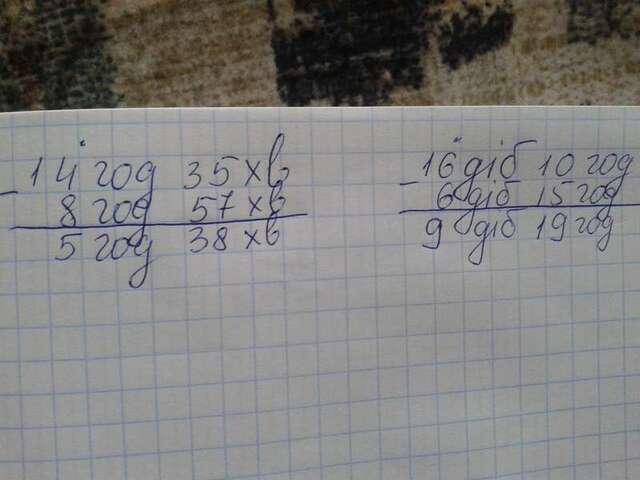 14 год 35 хв
- 8 год 57 хв
5 год 38 хв
16 діб 10 год
- 6 діб 15 год
9 діб 19 год